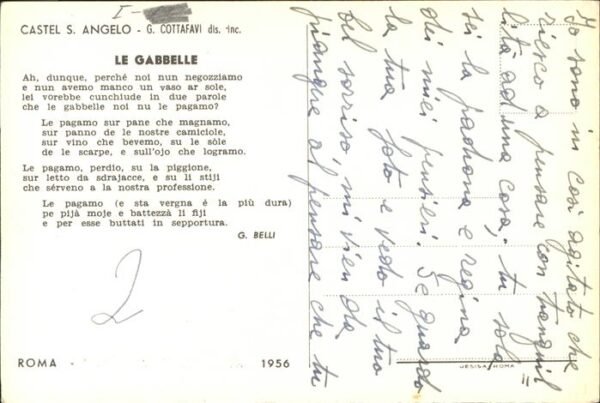 I-
CASTEL S. ANGELO - G. COTTAFAVI dis. inc.
LE GABBELLE
Ah, dunque, perché noi nun negozziamo
e nun avemo manco un vaso ar sole,
lei vorebbe cunchiude in due parole
che le gabbelle noi nu le pagamo?
Le pagamo sur pane che magnamo,
sur panno de le nostre camiciole,
sur vino che bevemo, su le sòle
de le scarpe, e sull'ojo che logramo.
Le pagamo, perdio, su la piggione,
sur letto da sdrajacce, e su li stiji
che sérveno a la nostra professione.
Le pagamo (e sta vergna é la più dura)
pe pijà moje e battezzà li fiji
e per esse buttati in sepportura.
G. BELLI
2
ROMA
1956
DESISA-ROMA
II
Io sono in così agitato che
riesco a pensare con tranquil
lità ad una cosa; tu sola
sei la padrona e regina
dei miei pensieri. Se guardo
la tua foto e vedo il tuo
bel sorriso, mi vien da
piangere al pensare che tu